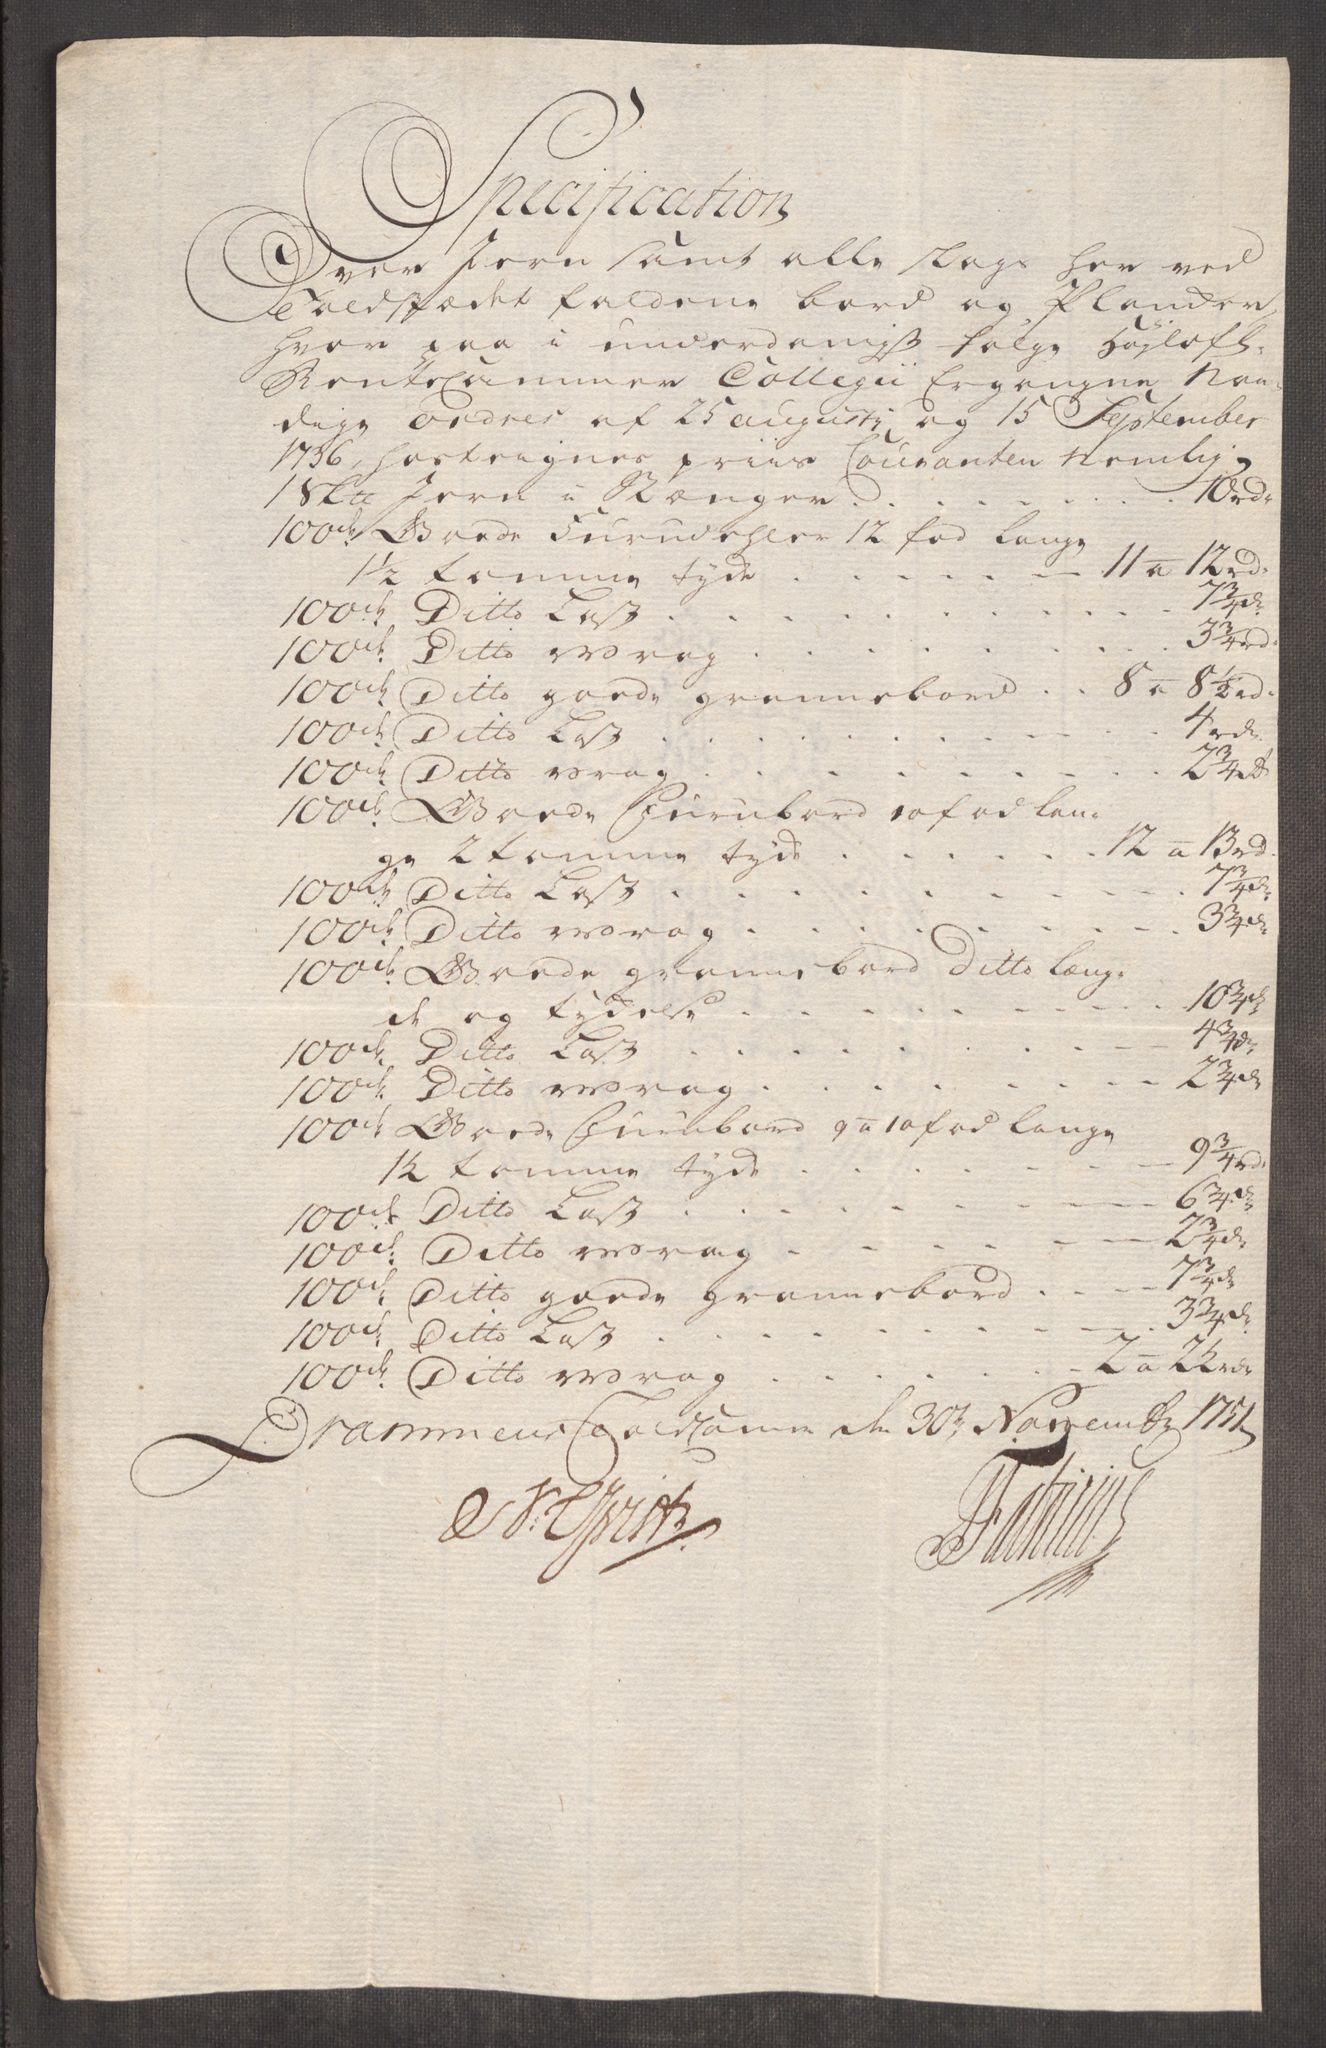 Specification
Over Jern samt alle slags her ved
Toldstædet faldene bord og Plancker,
hvor paa i underdanigst følge Høyloftl:
RenteCammer Collegii Ergangne Naa¬
dige ordres af 25 augusti og 15 September
1736, hostegnes priis Couranten Nemlig,
1 Sk℔ Jern i Stænger . . . . . . . 10 rd:
100de Goede Furudehler 12 fod lange
1½ tomme tyde . . . . . . 11 a 12 rd:
100de Ditto Last . . . . . . . . . 7¾ d:
100de Ditto wrag . . . . . . . . 3¾ rd:
100de Ditto goede grannebord . . 8 a 8½ rd:
100de Ditto Last . . . . . . . . . 4 rd:
100de Ditto wrag . . . . . . . . 2¾ d:
100de Goede Furubord 10 fod lan¬
ge 2 tomme tyde . . . . . . 12 a 13 rd:
100de Ditto Last . . . . . . . . . 7¾ d:
100de Ditto wrag . . . . . . . . 3¾ d:
100de Goede grannebord Ditto læng¬
de og tydelse . . . . . . . . 10¾ d:
100de Ditto Last . . . . . . . . . 4¾ d:
100de Ditto wrag . . . . . . . . 2¾ d:
100de Goede Furubord 9 a 10 fod lange
1½ tomme tyde . . . . . . . . 9¾ rd:
100de Ditto Last . . . . . . . . . 6¾ d:
100de Ditto wrag . . . . . . . . 2¾ d:
100de Ditto goede grannebord . . . . 7¾ d:
100de Ditto Last . . . . . . . . . 3¾ d:
100de Ditto wrag . . . . . . . 2 a 2½ rd:
Drammens Toldcamer d: 30te Novembr 1751